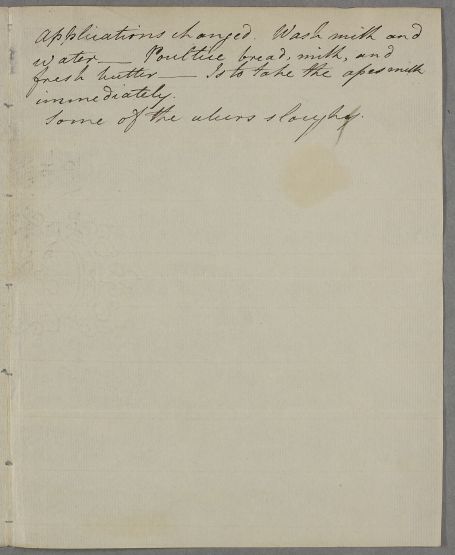 Applications changed. Wash milk and
water — Poultice bread, milk, and
fresh butter — Is to take the apes milk
immediately.
Some of the ulcers sloughy.